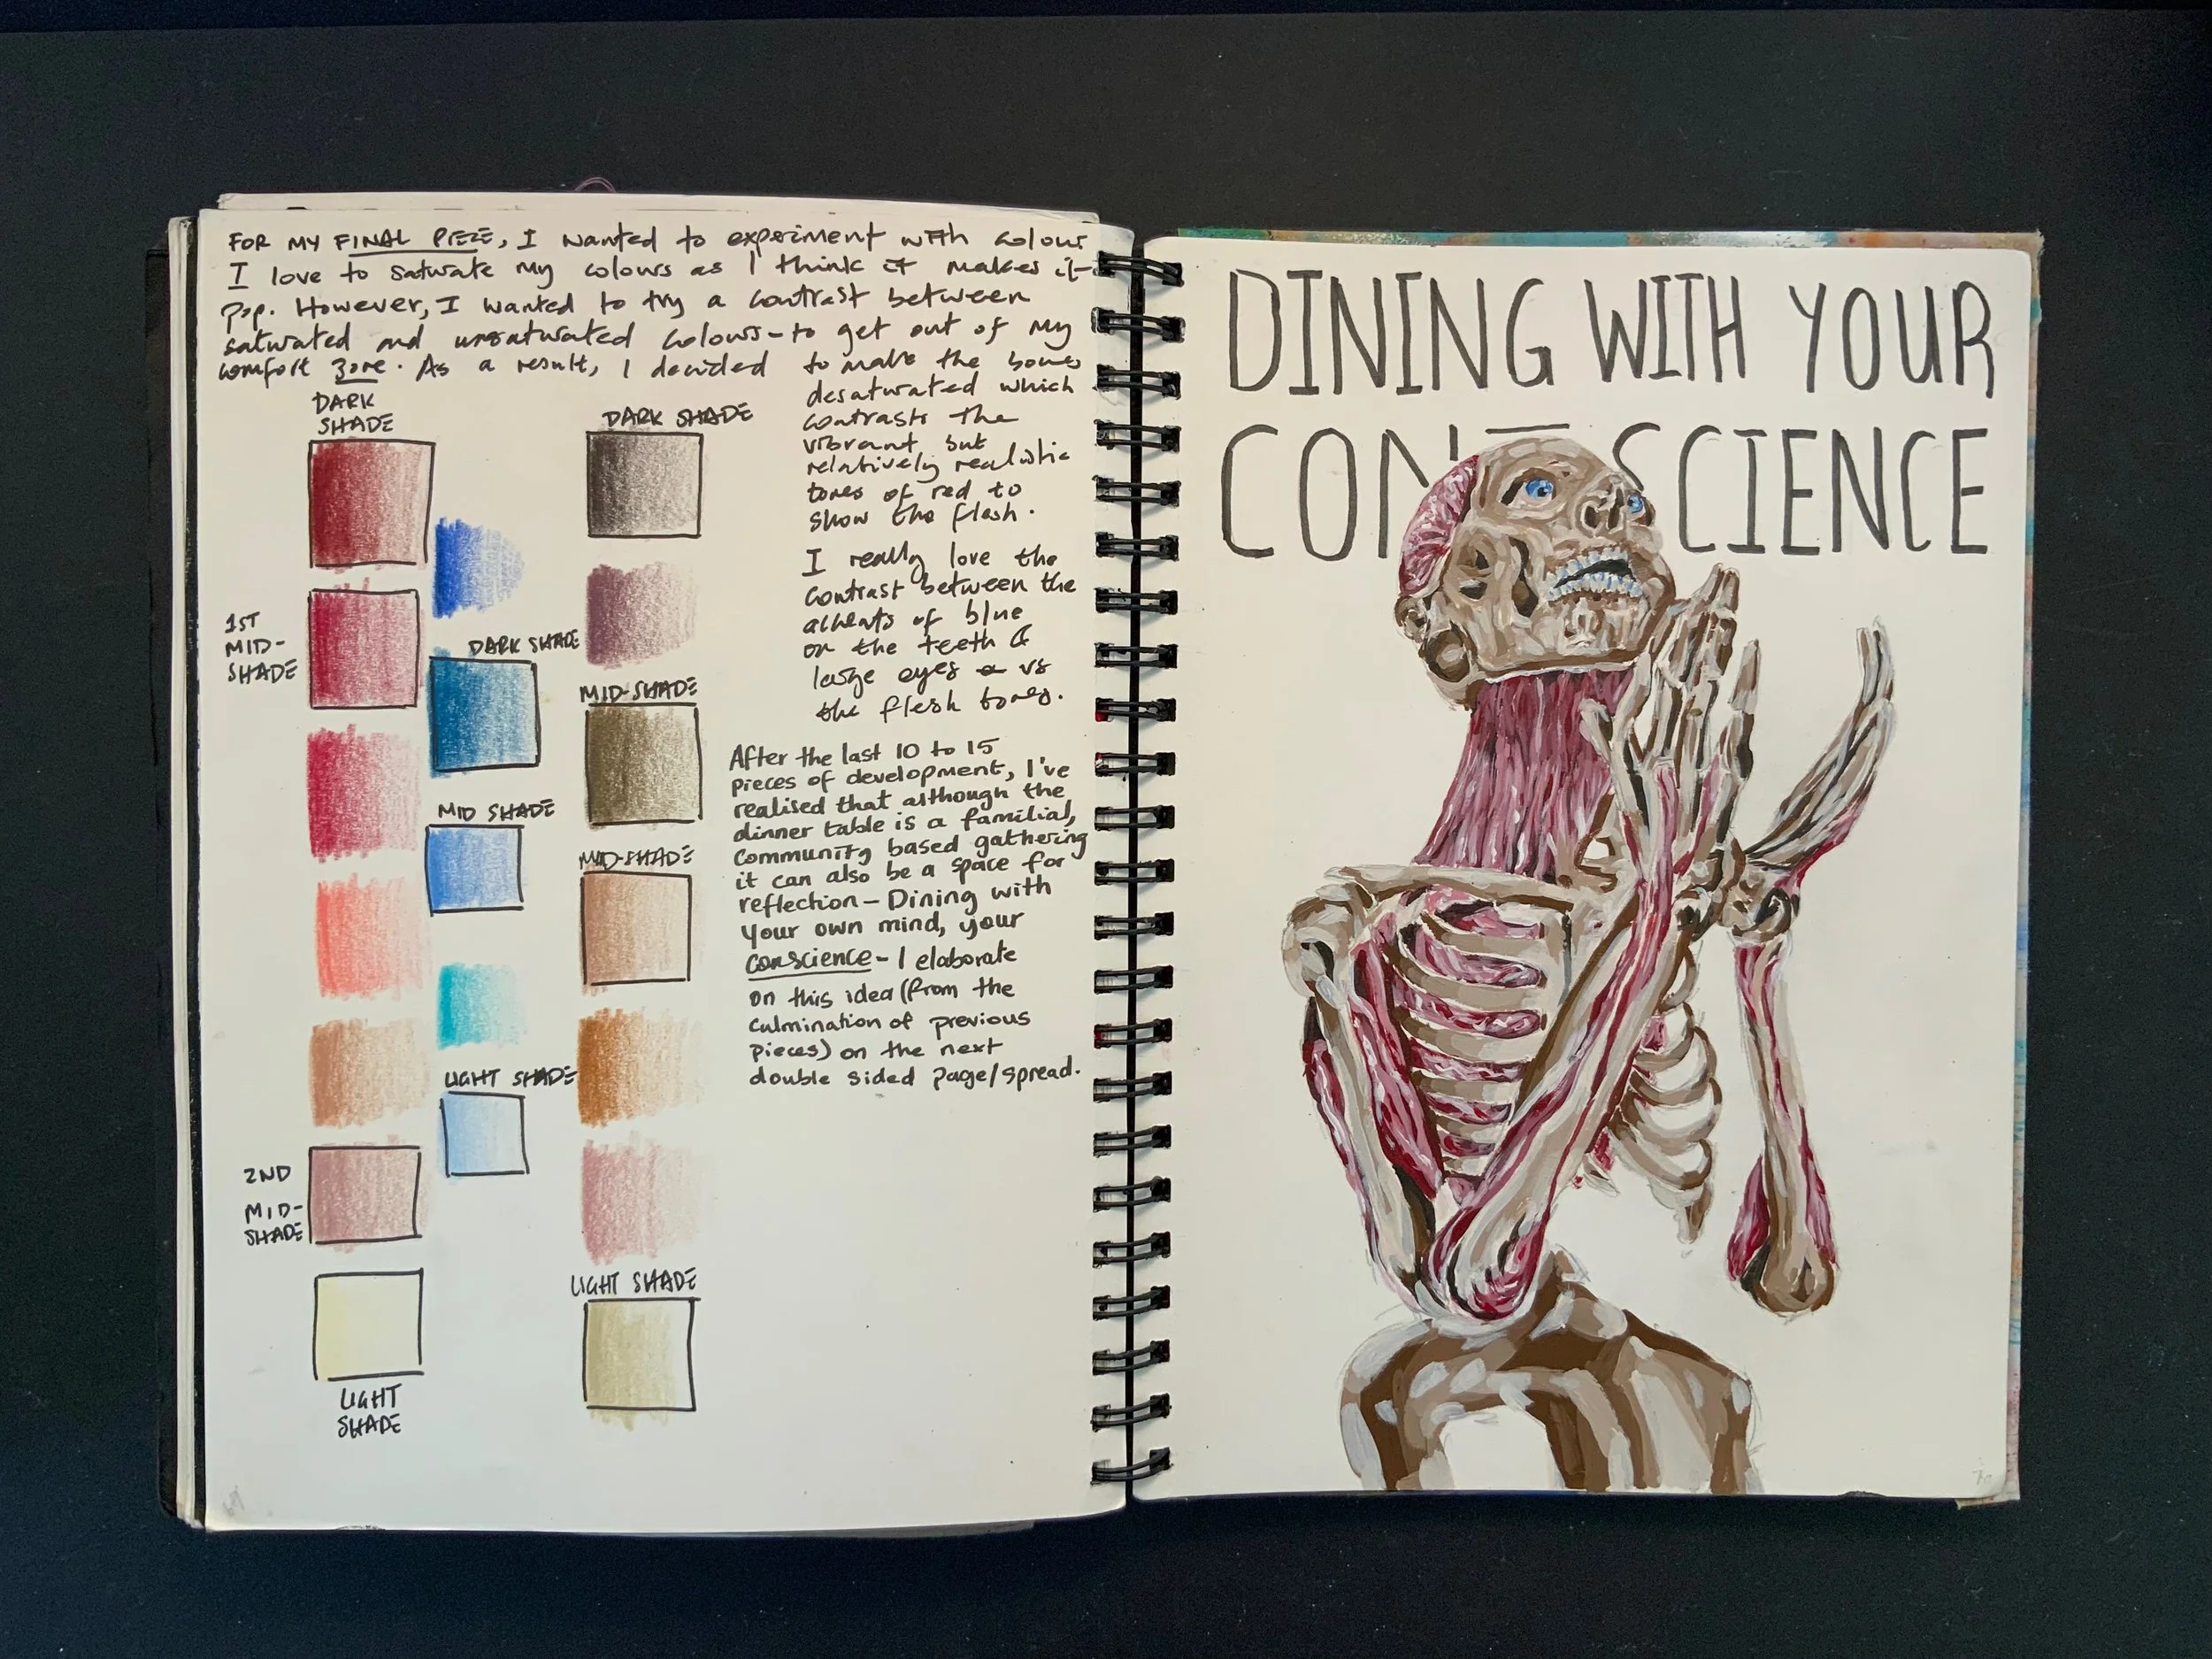 FOR MY FINAL PIECE, I wanted to experiment with colour
I love to saturate my colours as I think it makes it
pop. However, I wanted to try a contrast between
saturated and unsaturated colours - to get out of my
comfort zone. As a result, I decided to make the bones
desaturated which
contrasts the
vibrant but
relatively realistic
tones of red to
show the flesh.
I really love the
contrast between the
accents of blue
on the teeth &
large eyes vs
the flesh tones.
After the last 10 to 15
pieces of development, I've
realised that although the
dinner table is a familial,
community based gathering
it can also be a space for
reflection - Dining with
your own mind, your
conscience - I elaborate
on this idea (from the
culmination of previous
pieces) on the next
double sided page/spread.
DARK
SHADE
1ST
MID-
SHADE
2ND
MID-
SHADE
LIGHT
SHADE
DARK SHADE
MID SHADE
LIGHT SHADE
DARK SHADE
MID-SHADE
MID-SHADE
LIGHT SHADE
DINING WITH YOUR
CON SCIENCE